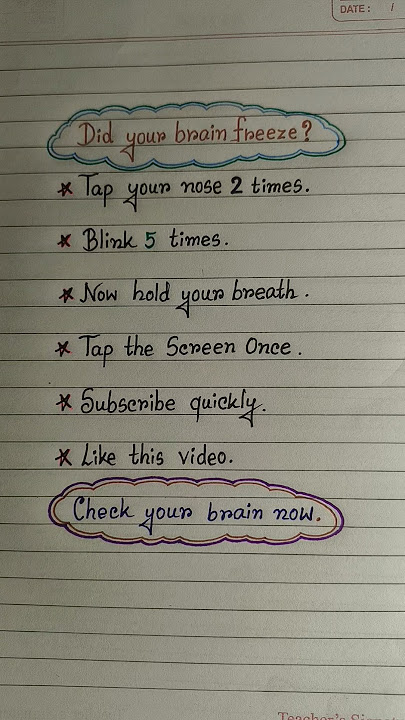 DATE: /
Did your brain freeze?
* Tap your nose 2 times.
* Blink 5 times.
* Now hold your breath.
* Tap the Screen Once.
* Subscribe quickly.
* Like this video.
Check your brain now.
Teacher's